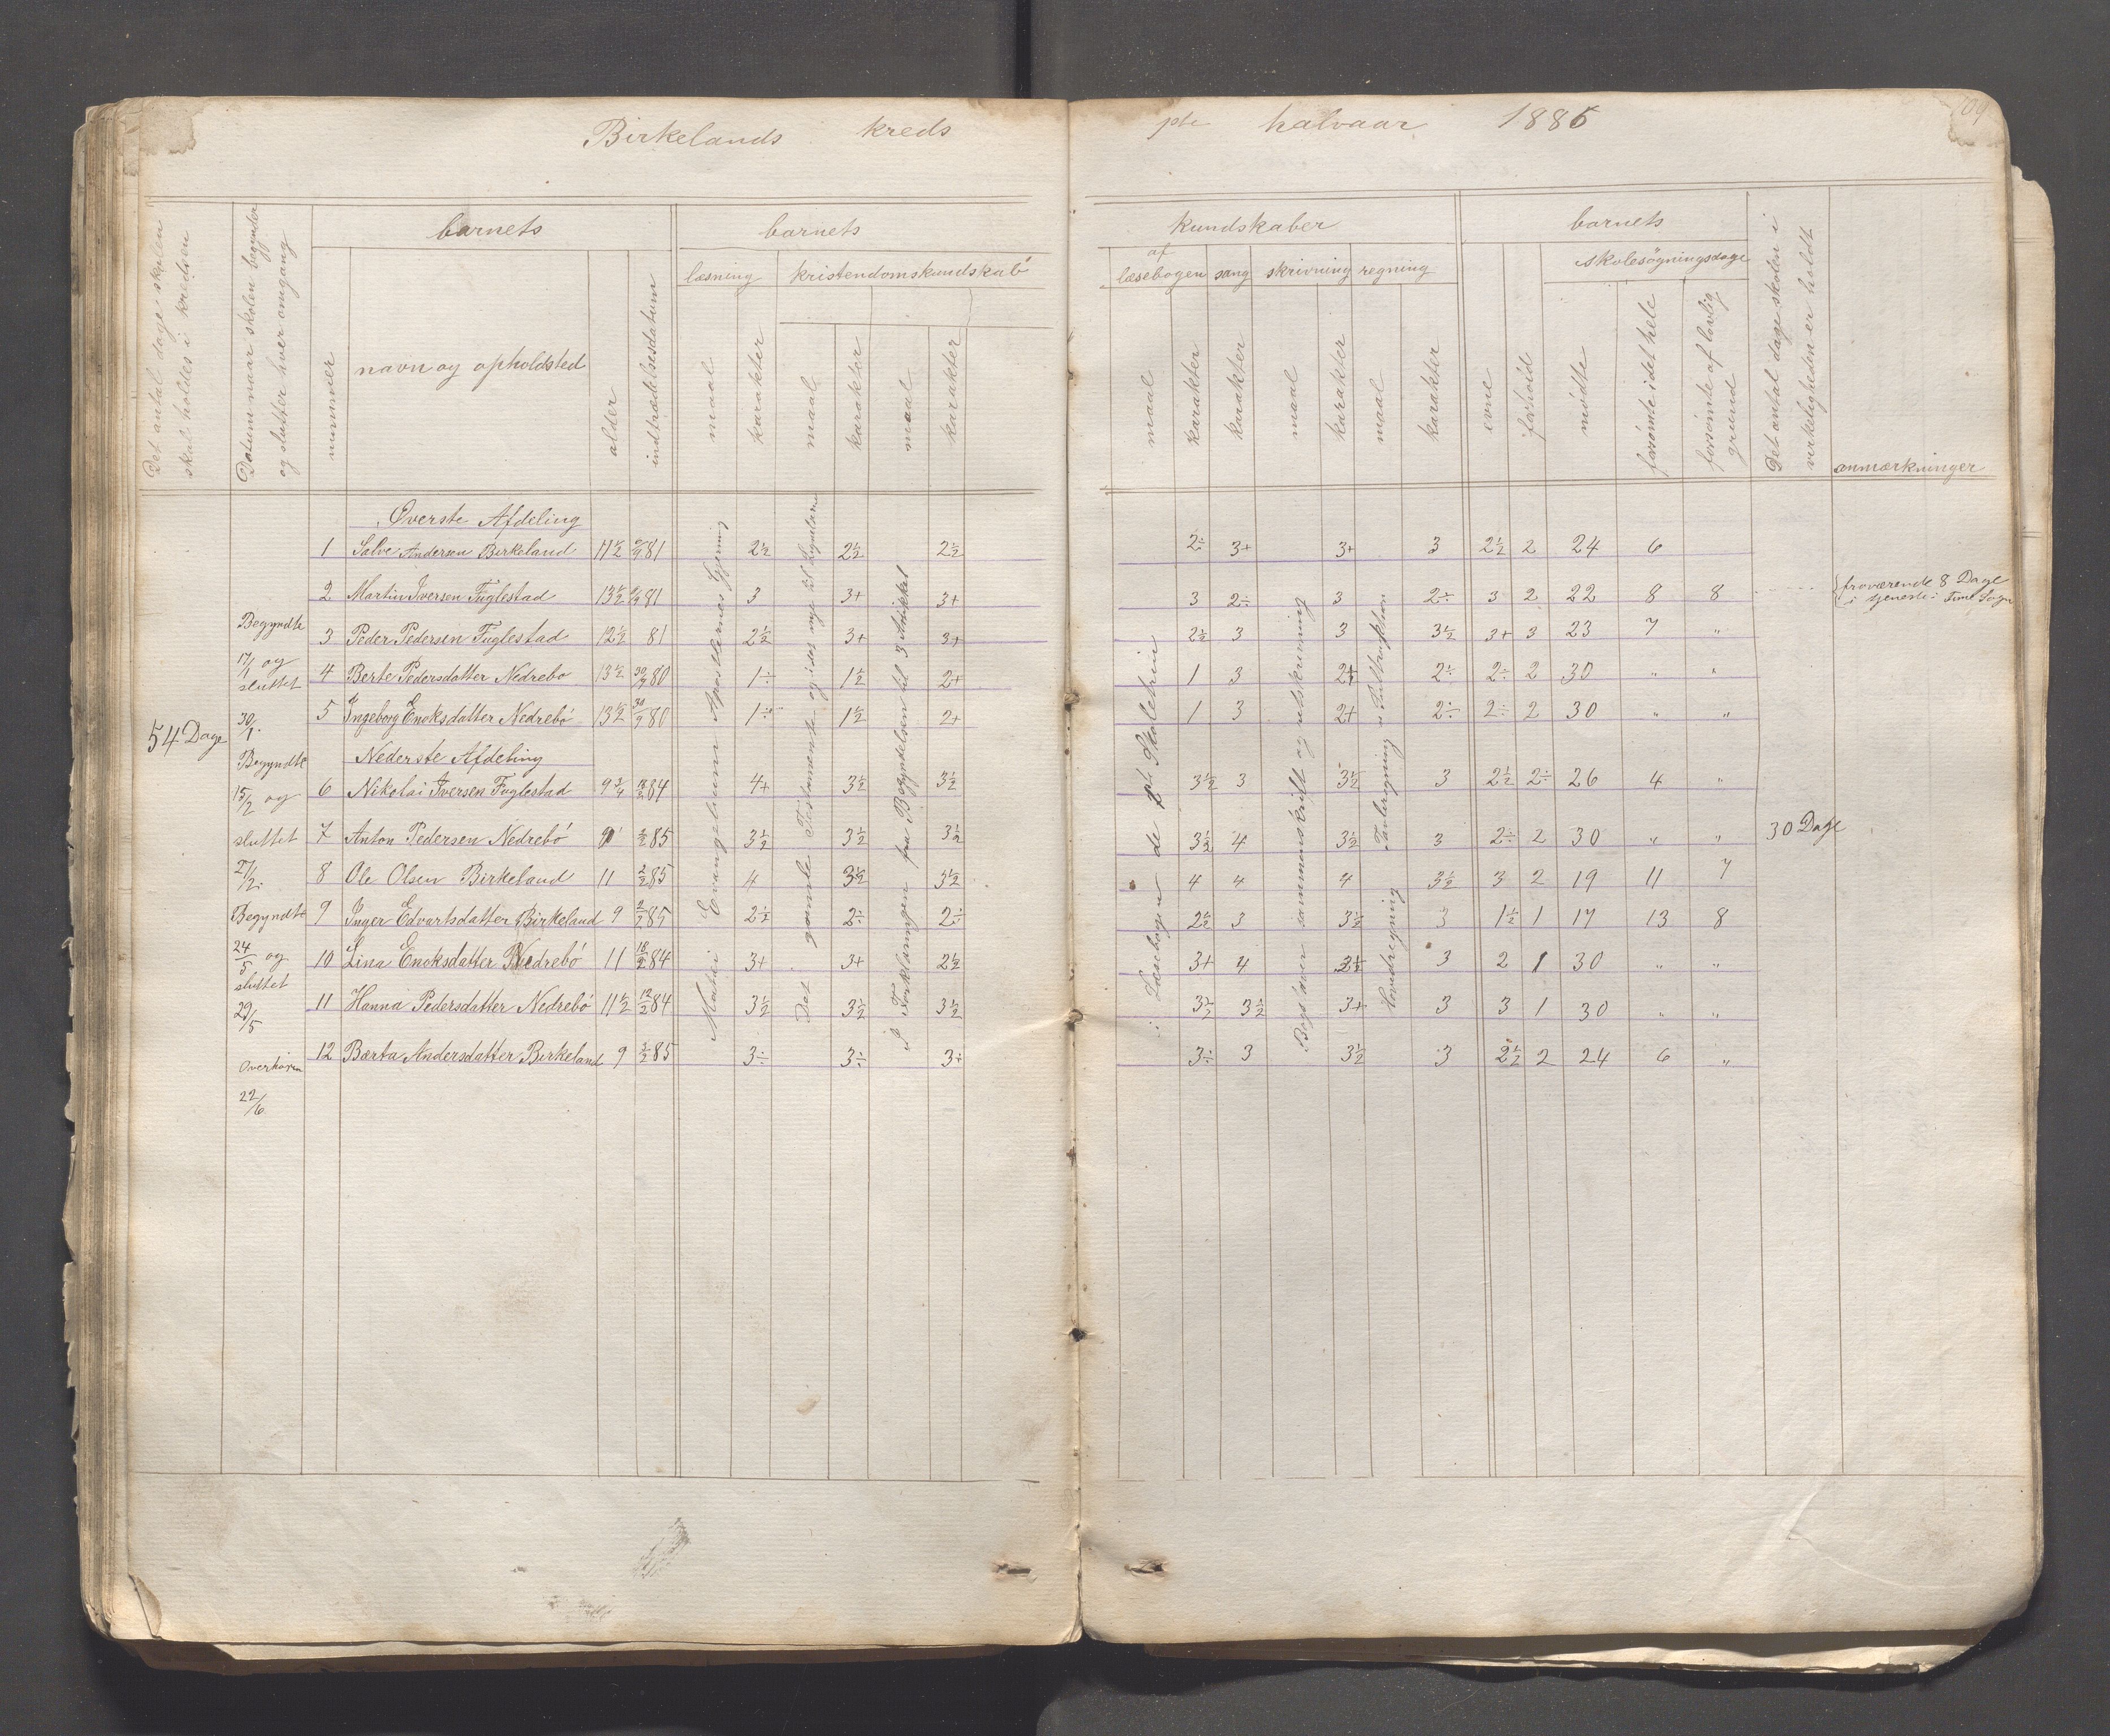 Birkelands kreds
halvaar 1885
Det antal dage skolen
skal holdes i kredsen
Datum naar skolen begynder
og slutter hver omgang
nummer
barnets
navn og opholdsted
alder
indtrædelsesdatum
barnets
læsning
kristendomskundskab
maal
karakter
maal
karakter
maal
karakter
kundskaber
af
læsebogen sang skrivning regning
maal
karakter
karakter
maal
karakter
maal
karakter
barnets
evne
forhold
skolesøgningsdage
mødte
forsømte i det hele
forsømte af lovlig
grund
Det antal dage skolen i
virkeligheden er holdt
anmærkninger
54 Dage
Begyndte
17/1 og
sluttet
30/1.
Begyndte
15/2 og
sluttet
27/2.
Begyndte
24/5 og
sluttet
29/5
Overhøren
22/6
Øverste Afdeling
1 Salve Andersen Birkeland 11 1/2 81 2 1/2 2 1/2 2 1/2 2÷ 3+ 3+ 3 2 1/2 2 24 6
2 Martin Iversen Fuglestad 13 1/2 81 3 3+ 3+ 3 2÷ 3 2÷ 3 2 22 8 8 fraværende 8 Dage
i tjeneste i Time Sogn
3 Peder Pedersen Fuglestad 12 1/2 81 2 1/2 3+ 3+ 2 1/2 3 3 3 1/2 3+ 3 23 7 "
4 Berte Pedersdatter Nedrebø 13 1/2 30/9 80 1÷ 1 1/2 2+ 1 3 2+ 2÷ 2÷ 2 30 " "
5 Ingeborg Enoksdatter Nedrebø 13 1/2 30/9 80 1÷ 1 1/2 2+ 1 3 2+ 2÷ 2÷ 2 30 " "
Nederste Afdeling
6 Nikolai Iversen Fuglestad 9 3/4 84 4+ 3 1/2 3 1/2 3 1/2 3 3 1/2 3 2 1/2 2÷ 26 4 "
7 Anton Pedersen Nedrebø 9 85 3 1/2 3 1/2 3 1/2 3 1/2 4 3 1/2 3 2÷ 2 30 " "
8 Ole Olsen Birkeland 11 2/2 85 4 3 1/2 3 1/2 4 4 4 3 1/2 3 2 19 11 7
9 Inger Edvartsdatter Birkeland 9 2/2 85 2 1/2 2÷ 2÷ 2 1/2 3 3 1/2 3 1 1/2 1 17 13 8
10 Lina Enoksdatter Nedrebø 11 18/2 84 3+ 3+ 2 1/2 3+ 4 3 2 1 30 " "
11 Hanna Pedersdatter Nedrebø 11 1/2 12/2 84 3 1/2 3 1/2 3 1/2 3 1/2 3 1/2 3+ 3 3 1 30 " "
12 Bærta Andersdatter Birkeland 9 2/2 85 3÷ 3÷ 3÷ 3÷ 3 3 1/2 3 2 1/2 2 24 6 "
Matæi Evangelium Apostlernes Gjerning
Det gamle Testamente og i det nye til
I Forklaringen fra Begyndelsen til 3 Artikkel
i Læsebogen de Skoletrin
Bogstaver sammenskrift og retskrivning
Hovedregning Tavleregning
30 Dage